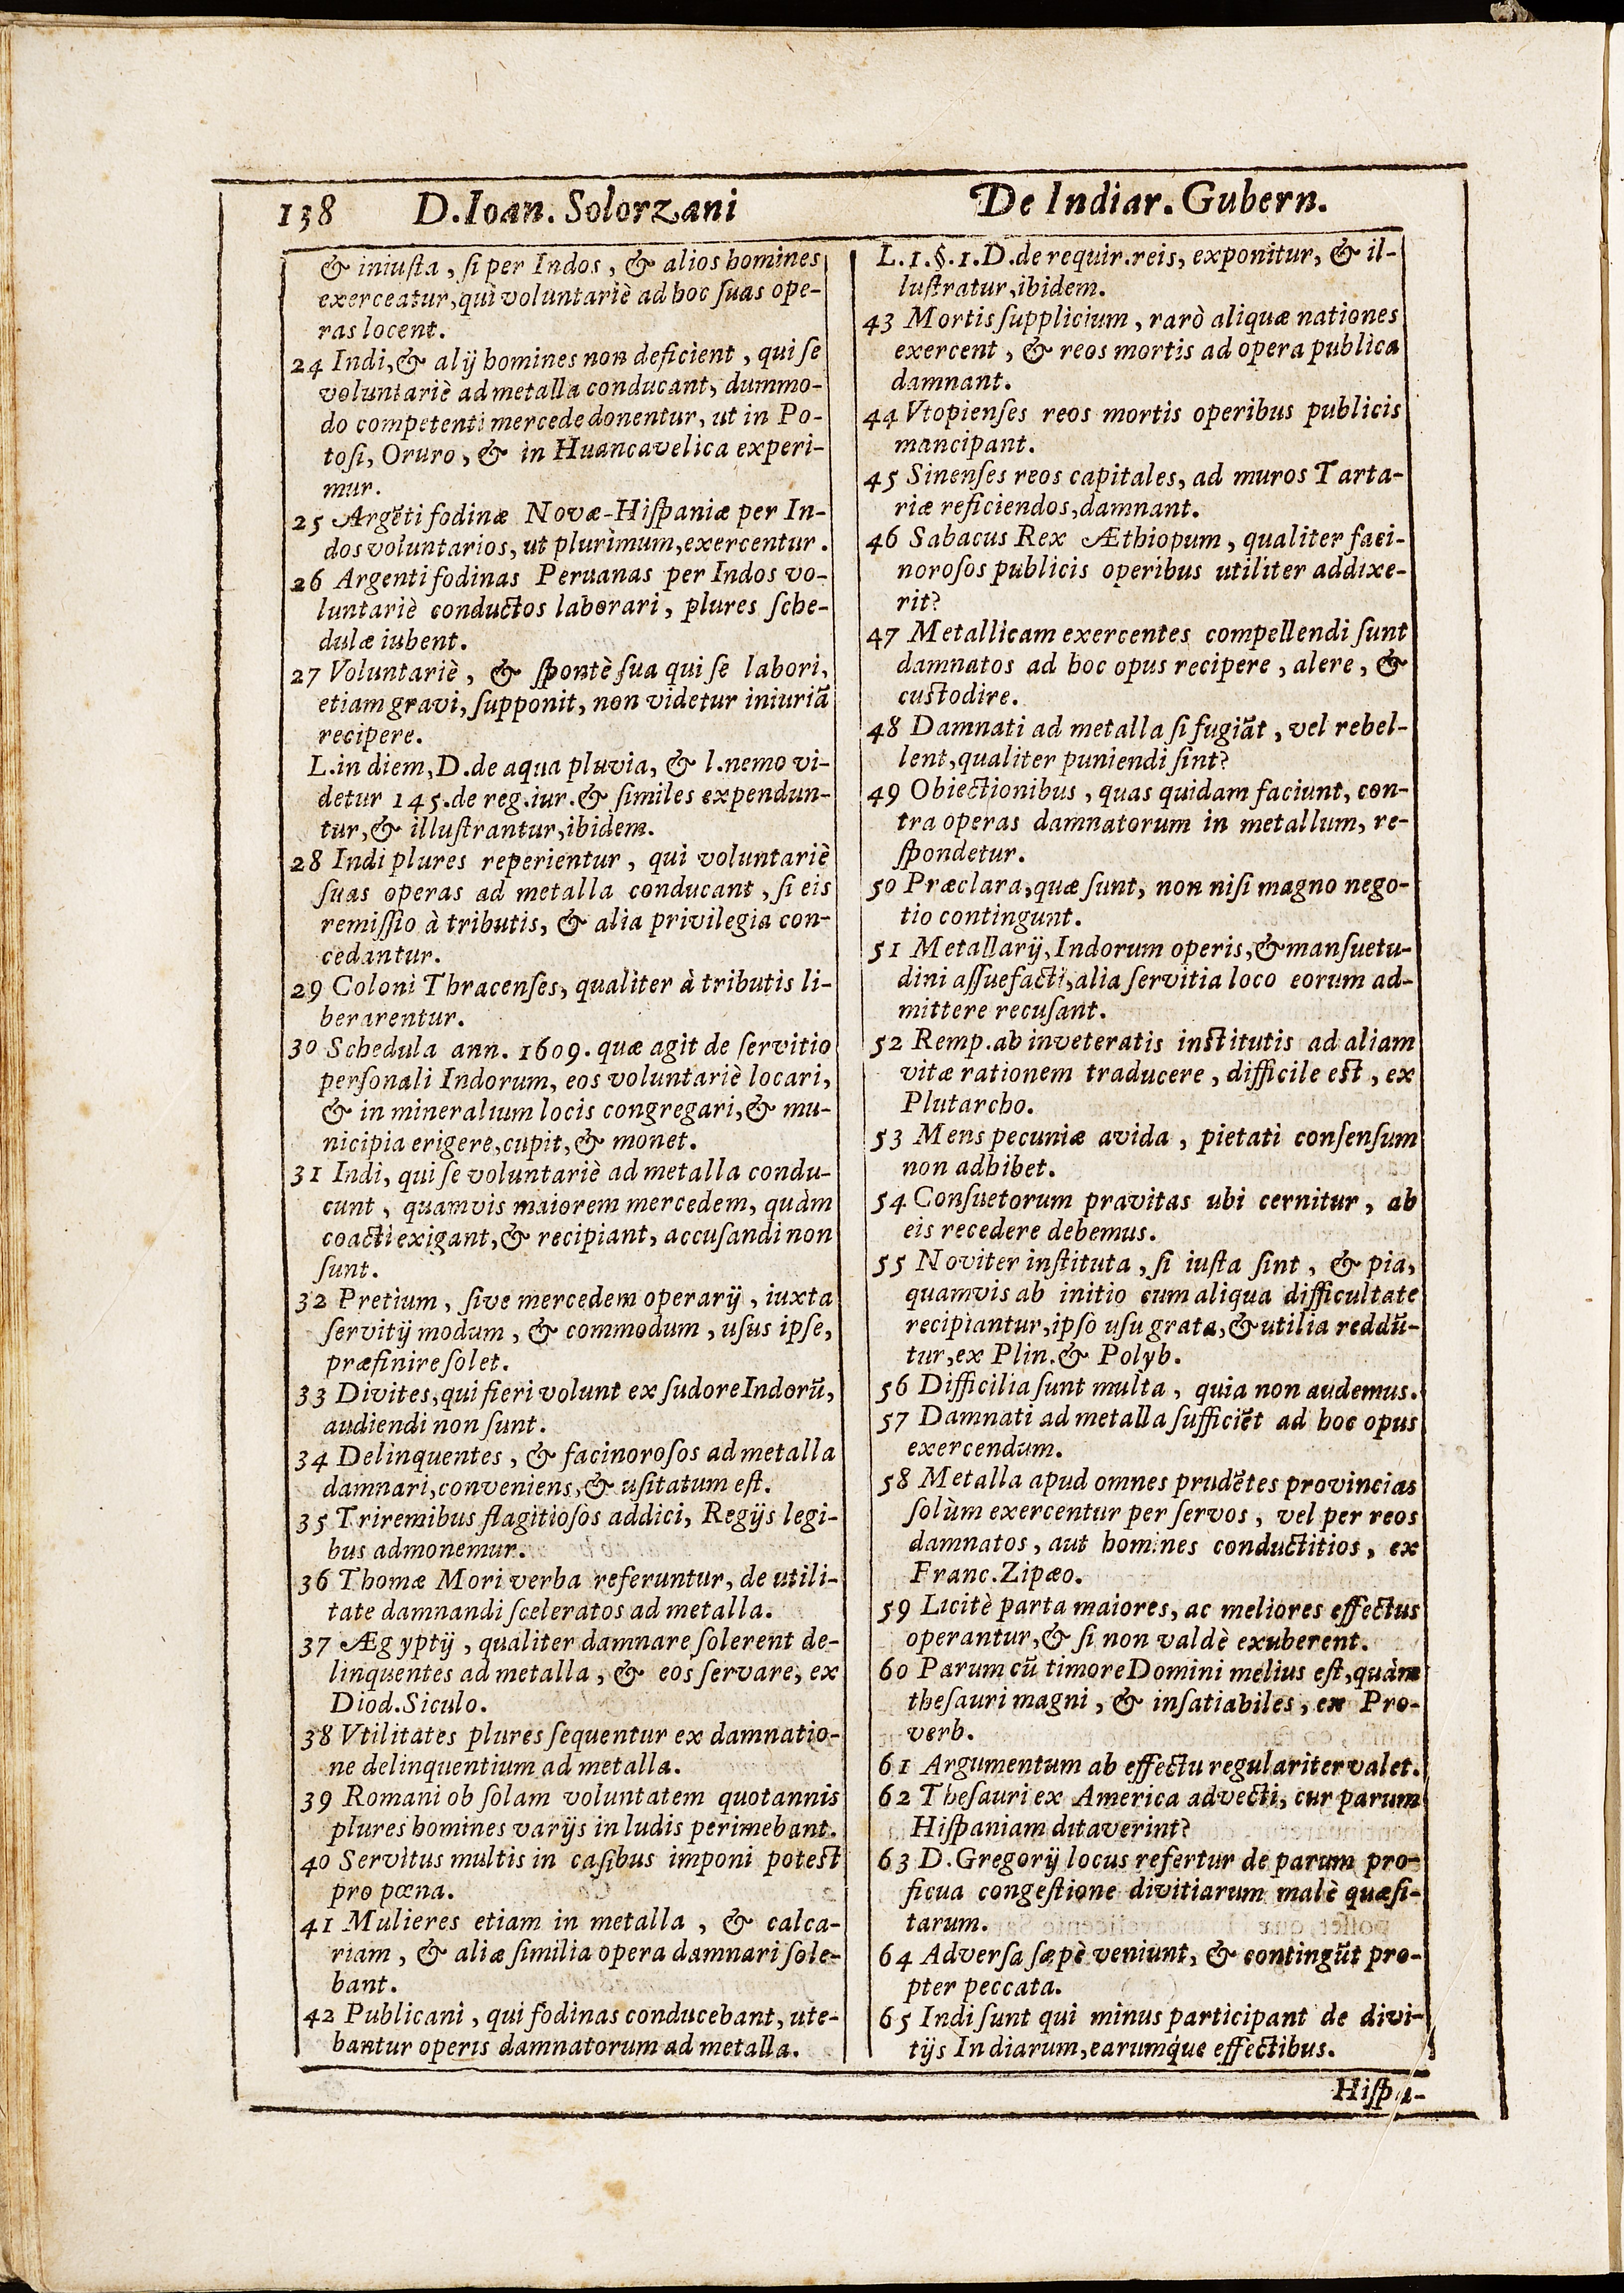 138 D. Ioan. Solorzani De Indiar. Gubern.
& iniuſta, ſi per Indos, & alios homines
exerceatur, qui voluntariè ad hoc ſuas ope-
ras locent.
24 Indi, & alij homines non deficient, qui ſe
voluntariè ad metalla conducant, dummo-
do competenti mercede donentur, ut in Po-
toſi, Oruro, & in Huancavelica experi-
mur.
25 Argẽti fodinæ Novæ-Hiſpaniæ per In-
dos voluntarios, ut plurimum, exercentur.
26 Argenti fodinas Peruanas per Indos vo-
luntariè conductos laborari, plures ſche-
dulæ iubent.
27 Voluntariè, & ſpontè ſua qui ſe labori,
etiam gravi, ſupponit, non videtur iniuriã
recipere.
L. in diem, D. de aqua pluvia, & l. nemo vi-
detur 145. de reg. iur. & ſimiles expendun-
tur, & illuſtrantur, ibidem.
28 Indi plures reperientur, qui voluntariè
ſuas operas ad metalla conducant, ſi eis
remiſſio à tributis, & alia privilegia con-
cedantur.
29 Coloni Thracenſes, qualiter à tributis li-
berarentur.
30 Schedula ann. 1609. quæ agit de ſervitio
perſonali Indorum, eos voluntariè locari,
& in mineralium locis congregari, & mu-
nicipia erigere, cupit, & monet.
31 Indi, qui ſe voluntariè ad metalla condu-
cunt, quamvis maiorem mercedem, quàm
coacti exigant, & recipiant, accuſandi non
ſunt.
32 Pretium, ſive mercedem operarij, iuxta
ſervitij modum, & commodum, uſus ipſe,
præfinire ſolet.
33 Divites, qui fieri volunt ex ſudore Indorũ,
audiendi non ſunt.
34 Delinquentes, & facinoroſos ad metalla
damnari, conveniens, & uſitatum eſt.
35 Triremibus flagitioſos addici, Regijs legi-
bus admonemur.
36 Thomæ Mori verba referuntur, de utili-
tate damnandi ſceleratos ad metalla.
37 Ægyptij, qualiter damnare ſolerent de-
linquentes ad metalla, & eos ſervare, ex
Diod. Siculo.
38 Vtilitates plures ſequentur ex damnatio-
ne delinquentium ad metalla.
39 Romani ob ſolam voluntatem quotannis
plures homines varijs in ludis perimebant.
40 Servitus multis in caſibus imponi potest
pro pœna.
41 Mulieres etiam in metalla, & calca-
riam, & aliæ ſimilia opera damnari ſole-
bant.
42 Publicani, qui fodinas conducebant, ute-
bantur operis damnatorum ad metalla.
L. 1. §. 1. D. de requir. reis, exponitur, & il-
luſtratur, ibidem.
43 Mortis ſupplicium, rarò aliquæ nationes
exercent, & reos mortis ad opera publica
damnant.
44 Vtopienſes reos mortis operibus publicis
mancipant.
45 Sinenſes reos capitales, ad muros Tarta-
riæ reficiendos, damnant.
46 Sabacus Rex Æthiopum, qualiter faci-
noroſos publicis operibus utiliter addixe-
rit?
47 Metallicam exercentes compellendi ſunt
damnatos ad hoc opus recipere, alere, &
custodire.
48 Damnati ad metalla ſi fugiãt, vel rebel-
lent, qualiter puniendi ſint?
49 Obiectionibus, quas quidam faciunt, con-
tra operas damnatorum in metallum, re-
ſpondetur.
50 Præclara, quæ ſunt, non niſi magno nego-
tio contingunt.
51 Metallarij, Indorum operis, & manſuetu-
dini aſſuefacti, alia ſervitia loco eorum ad-
mittere recuſant.
52 Remp. ab inveteratis institutis ad aliam
vitæ rationem traducere, difficile est, ex
Plutarcho.
53 Mens pecuniæ avida, pietati conſenſum
non adhibet.
54 Conſuetorum pravitas ubi cernitur, ab
eis recedere debemus.
55 Noviter inſtituta, ſi iuſta ſint, & pia,
quamvis ab initio cum aliqua difficultate
recipiantur, ipſo uſu grata, & utilia reddũ-
tur, ex Plin. & Polyb.
56 Difficilia ſunt multa, quia non audemus.
57 Damnati ad metalla ſufficiẽt ad hoc opus
exercendum.
58 Metalla apud omnes prudẽtes provincias
ſolùm exercentur per ſervos, vel per reos
damnatos, aut homines conductitios, ex
Franc. Zipæo.
59 Licitè parta maiores, ac meliores effectus
operantur, & ſi non valdè exuberent.
60 Parum cũ timore Domini melius eſt, quàm
theſauri magni, & inſatiabiles, ex Pro-
verb.
61 Argumentum ab effectu regulariter valet.
62 Theſauri ex America advecti, cur parum
Hiſpaniam ditaverint?
63 D. Gregorij locus refertur de parum pro-
ficua congeſtione divitiarum malè quæſi-
tarum.
64 Adverſa ſæpè veniunt, & contingũt pro-
pter peccata.
65 Indi ſunt qui minus participant de divi-
tijs Indiarum, earumq́ue effectibus.
Hiſpa-